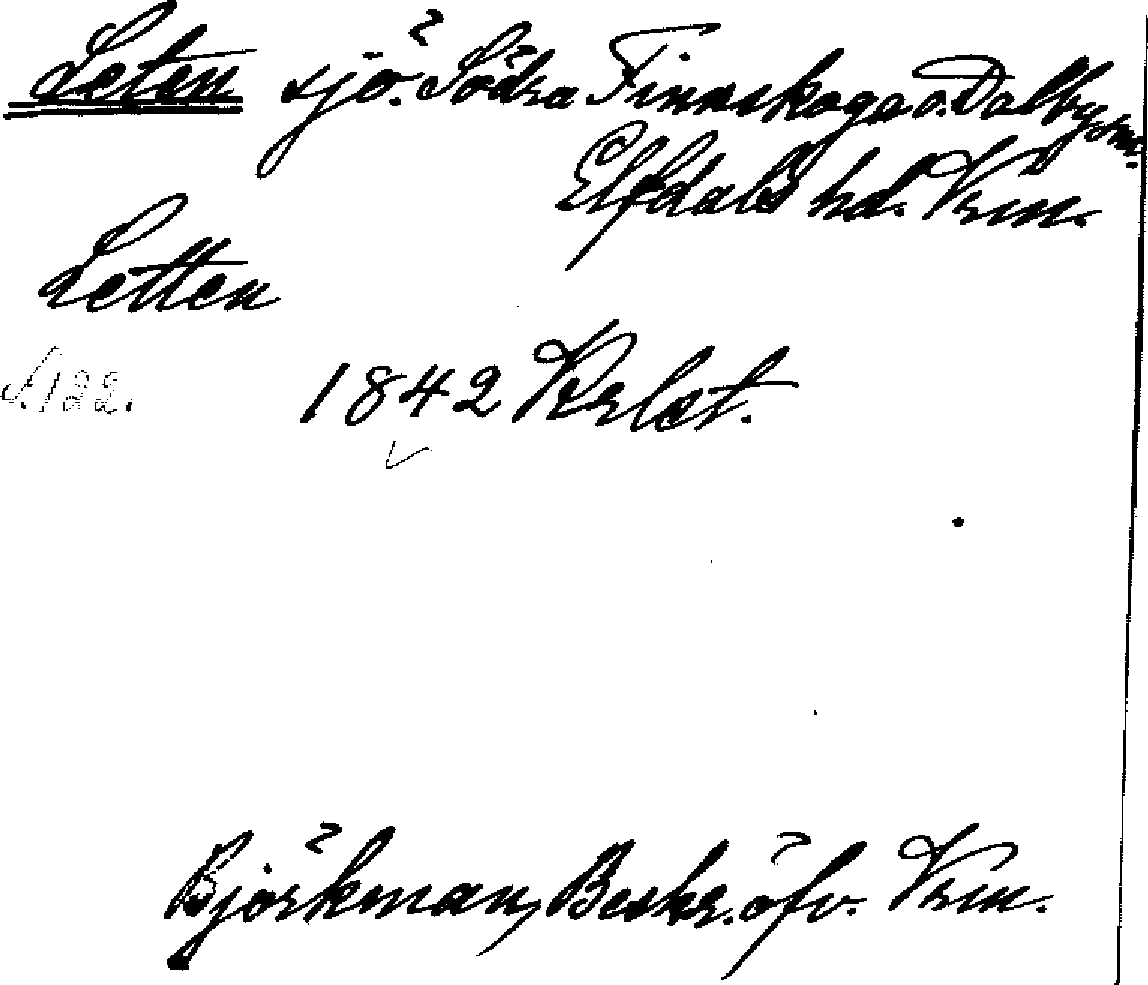 Leten sjö. Södra Finnskoga o. Dalby sn.
Elfdals hd. Vrm.
Letten
S. 122.
1842 Krlst.
Björkman, Beskr. öfv. Vrm.